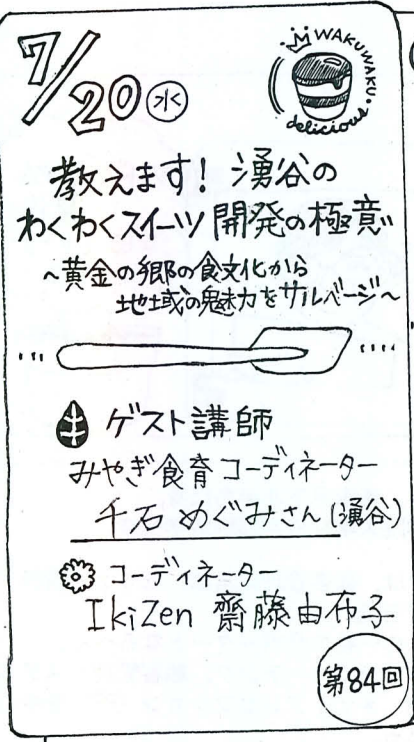 7/20(水)
WAKUWAKU
delicious
教えます! 湧谷の
わくわくスイーツ開発の極意
~黄金の郷の食文化から
地域の魅力をサルベージ~
ゲスト講師
みやぎ食育コーディネーター
千石めぐみさん(湧谷)
コーディネーター
IkiZen 齋藤由布子
第84回